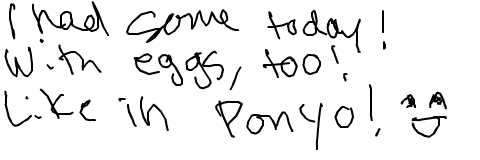 I had some today!
With eggs, too!
Like in Ponyo! ^^